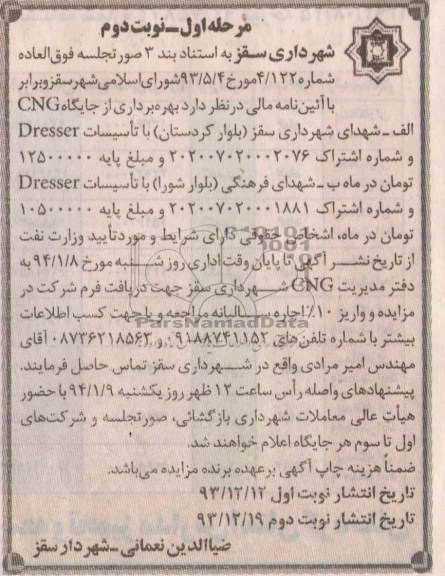 مرحله اول ـ نوبت دوم
شهرداری سقز به استناد بند ۳ صورتجلسه فوق العاده
شماره ۴/۱۲۲ مورخ ۹۳/۵/۴ شورای اسلامی شهر سقز و برابر
با آئین نامه مالی در نظر دارد بهره برداری از جایگاه CNG
الف ـ شهدای شهرداری سقز (بلوار کردستان) با تأسیسات Dresser
و شماره اشتراک ۲۰۲۰۰۷۰۲۰۰۰۲۰۷۶ و مبلغ پایه ۱۲۵۰۰۰۰۰
تومان در ماه ب ـ شهدای فرهنگی (بلوار شورا) با تأسیسات Dresser
و شماره اشتراک ۲۰۲۰۰۷۰۲۰۰۰۱۸۸۱ و مبلغ پایه ۱۰۵۰۰۰۰۰
تومان در ماه، اشخاص حقوقی دارای شرایط و مورد تأیید وزارت نفت
از تاریخ نشر آگهی تا پایان وقت اداری روز شنبه مورخ ۹۴/۱/۸ به
دفتر مدیریت CNG شهرداری سقز جهت دریافت فرم شرکت در
مزایده و واریز ۱۰٪ اجاره سالیانه مراجعه و یا جهت کسب اطلاعات
بیشتر با شماره تلفن های ۰۹۱۸۸۷۴۱۱۵۲ و ۰۸۷۳۶۲۱۸۵۶۳ آقای
مهندس امیر مرادی واقع در شهرداری سقز تماس حاصل فرمایند.
پیشنهادهای واصله رأس ساعت ۱۲ ظهر روز یکشنبه ۹۴/۱/۹ با حضور
هیأت عالی معاملات شهرداری بازگشائی، صورتجلسه و شرکت های
اول تا سوم هر جایگاه اعلام خواهند شد.
ضمناً هزینه چاپ آگهی برعهده برنده مزایده می باشد.
تاریخ انتشار نوبت اول ۹۳/۱۲/۱۲
تاریخ انتشار نوبت دوم ۹۳/۱۲/۱۹
ضیاالدین نعمانی ـ شهردار سقز
ParsNamadData